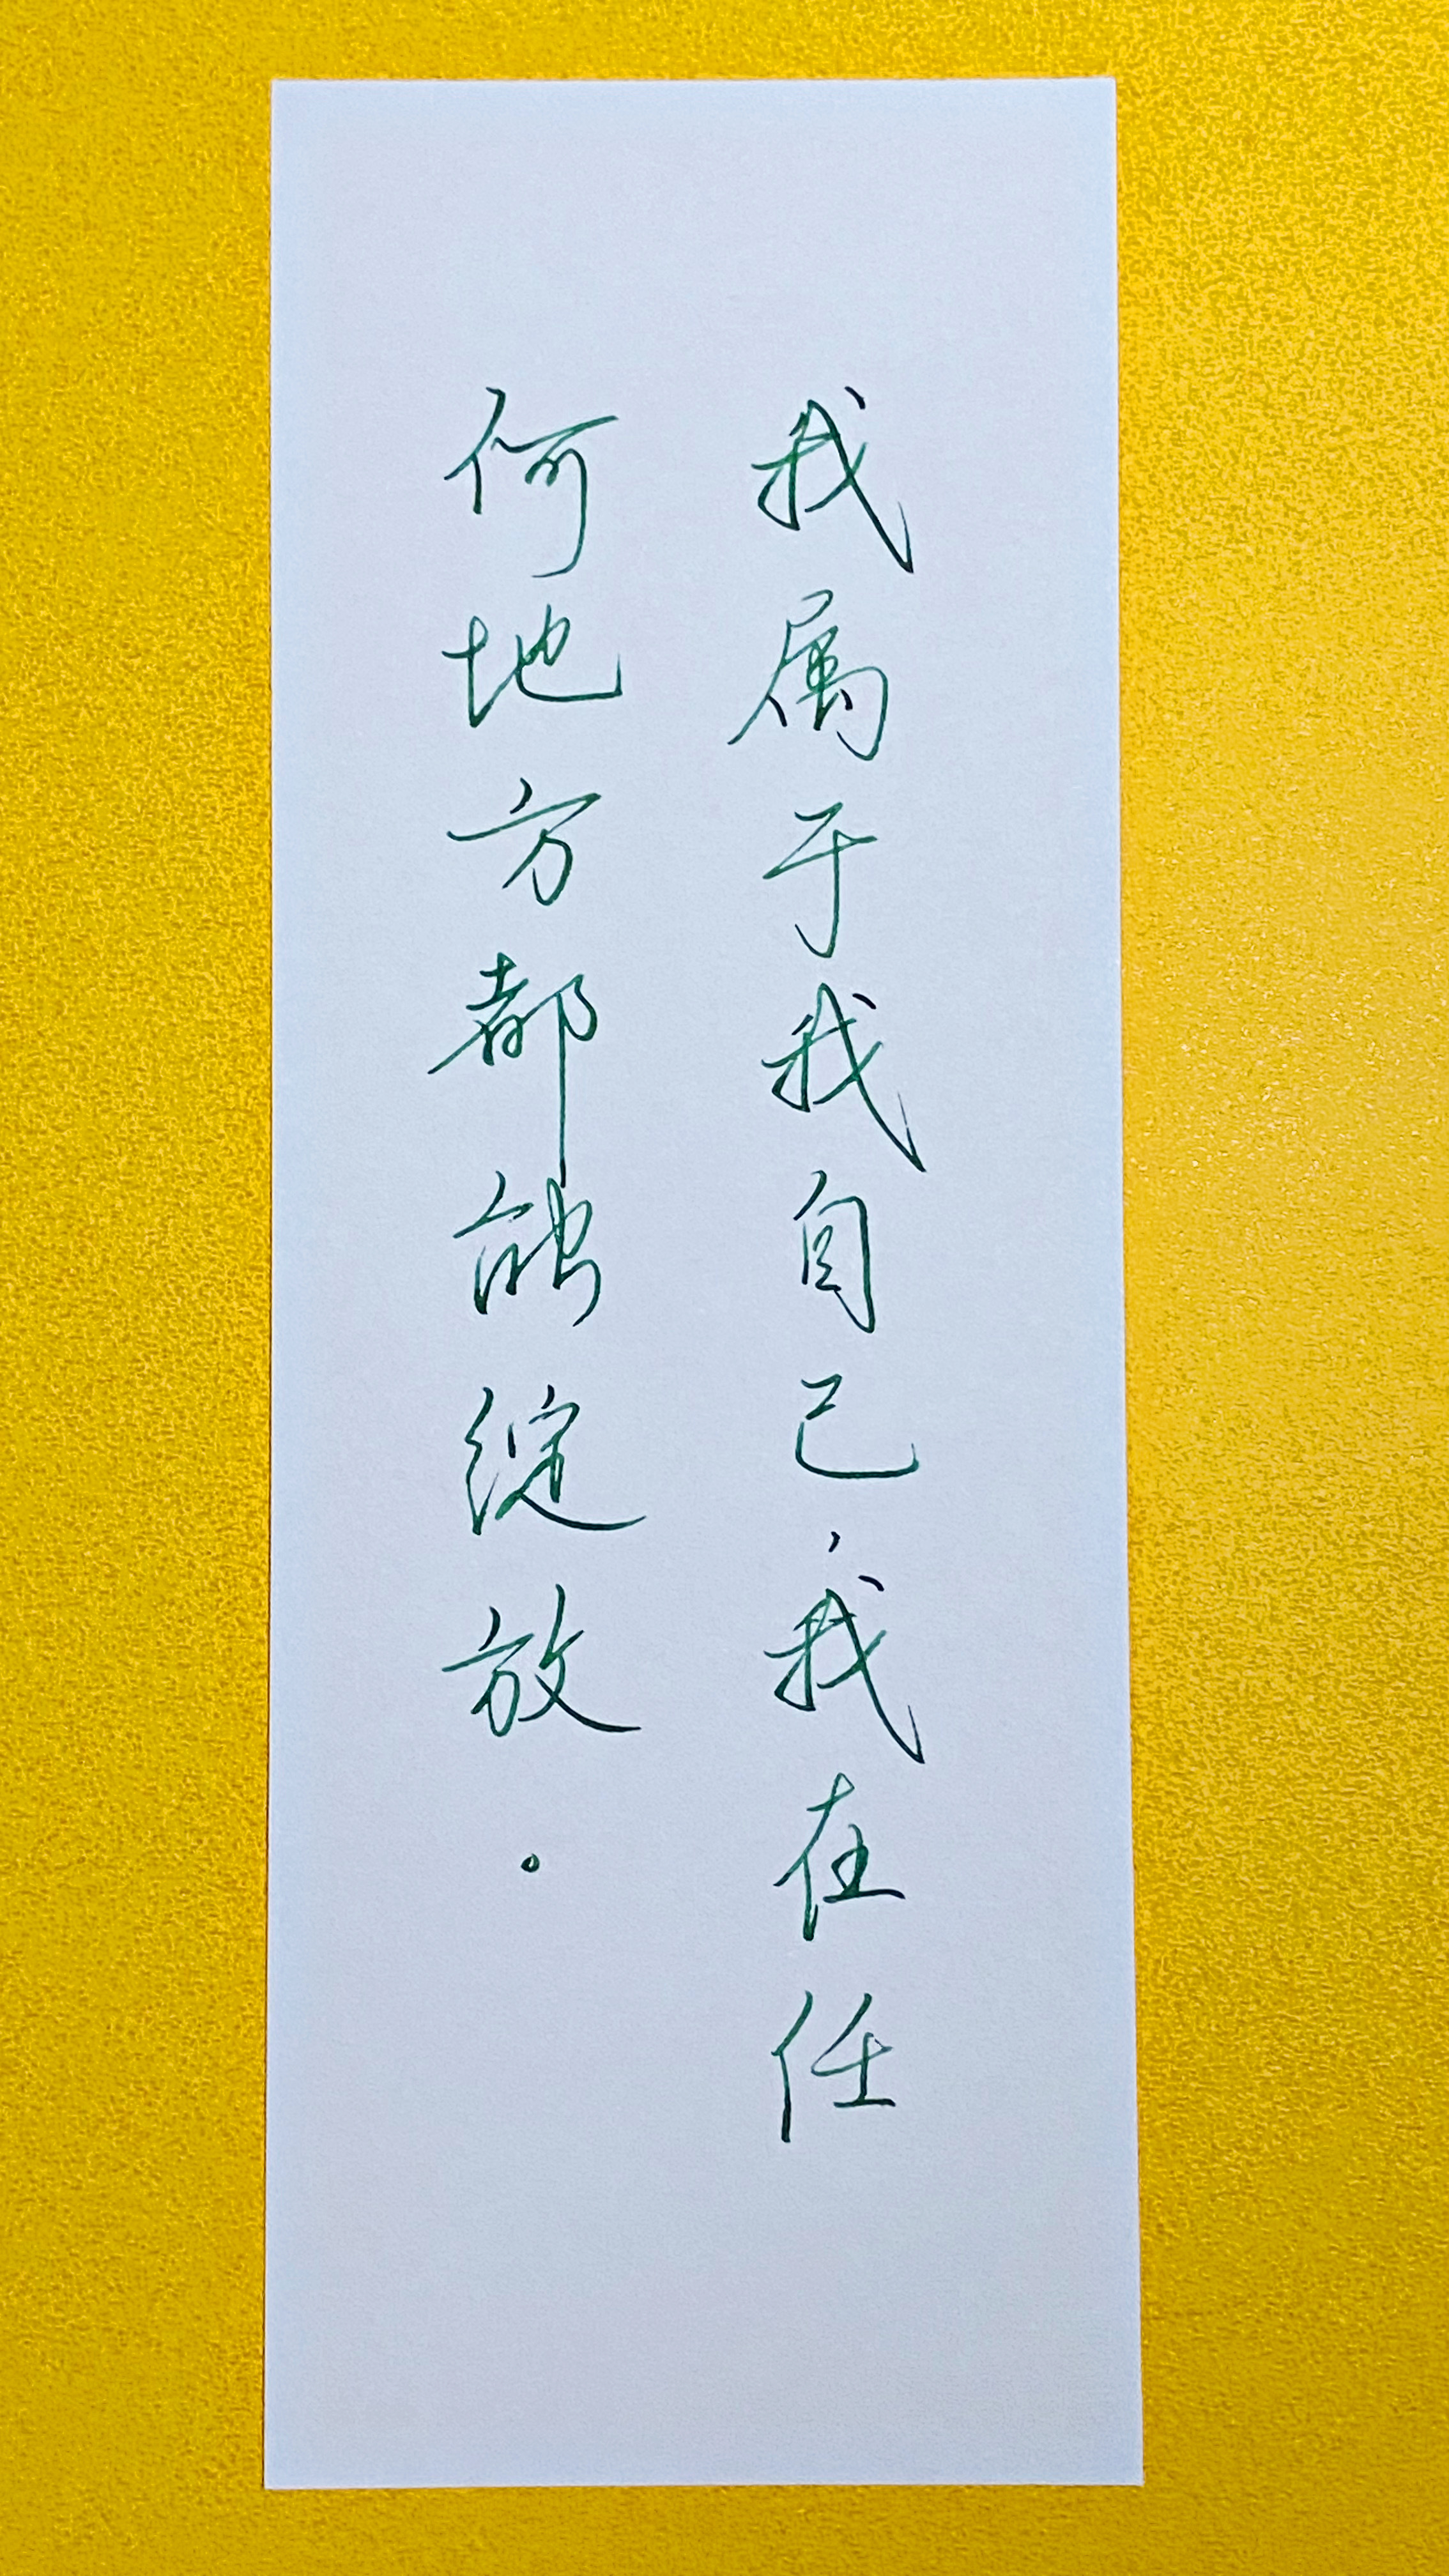 我属于我自己，我在任
何地方都能绽放。